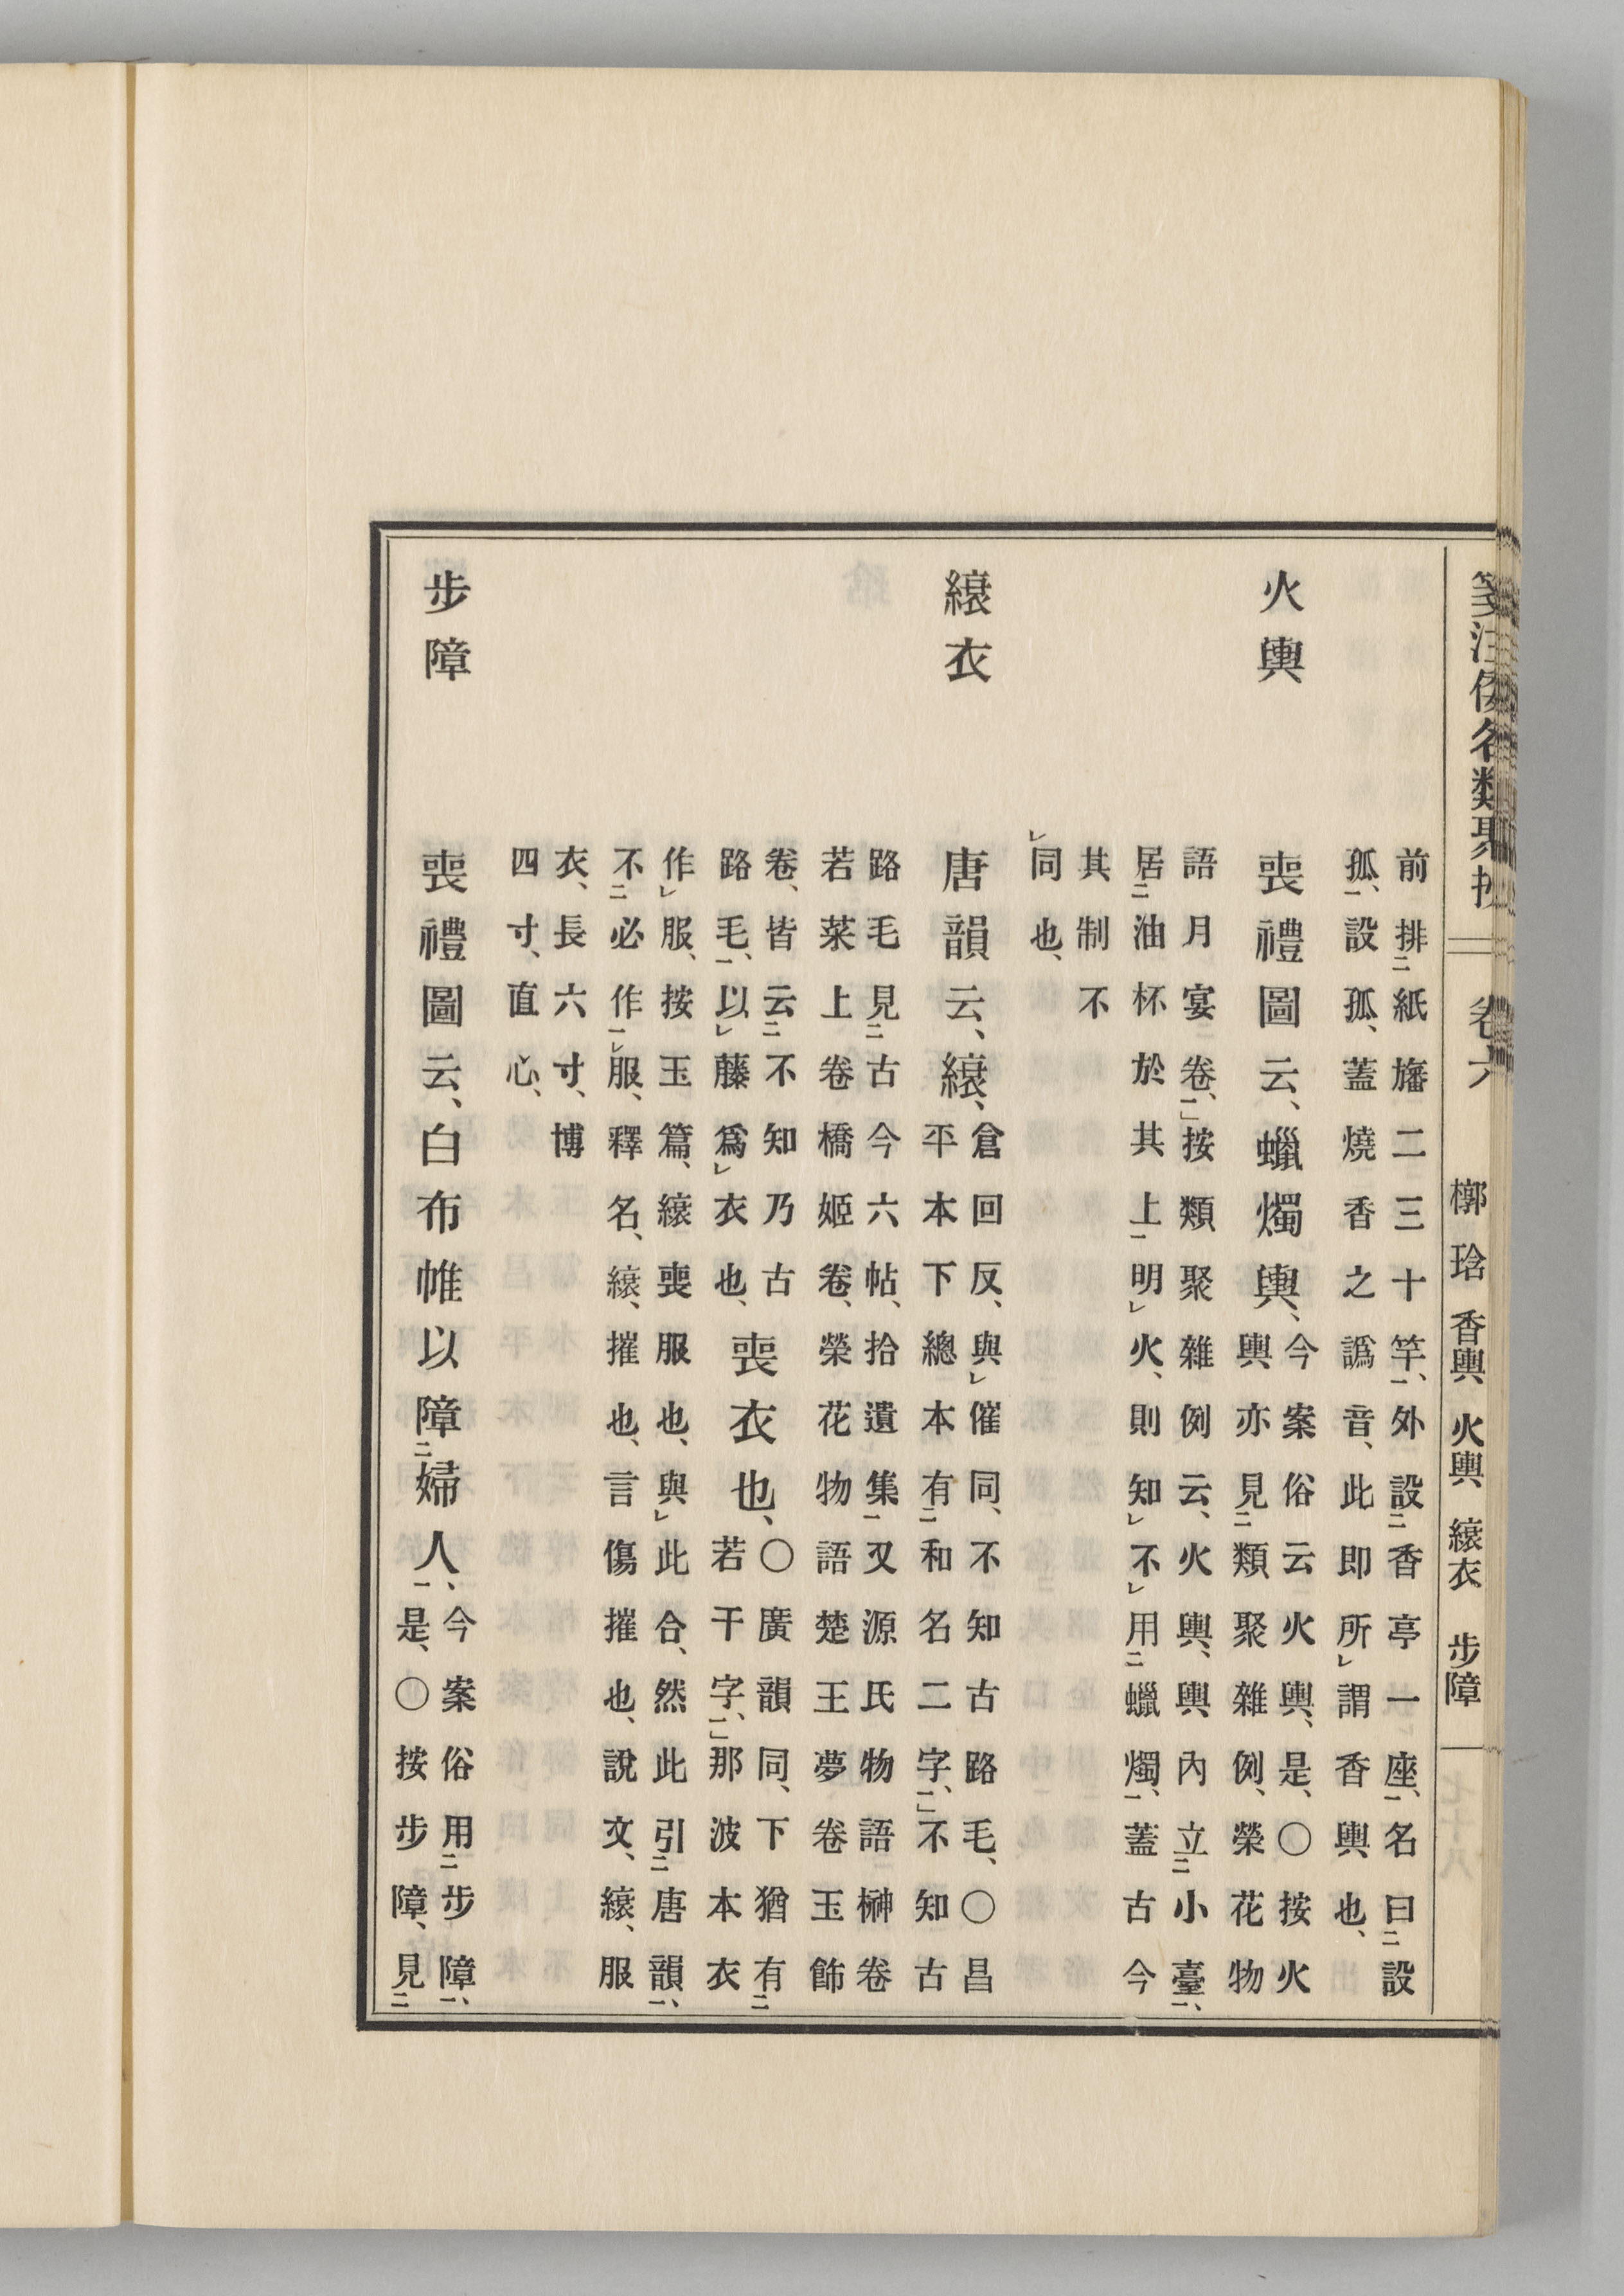 箋注倭名類聚抄 卷六 槨 琀 香輿 火輿 縗衣 步障
前排紙旛二三十竿、外設香亭一座、名曰設
孤、設孤、蓋燒香之譌音、此即所謂香輿也、
火輿 喪禮圖云、蠟燭輿、今案俗云火輿、是、○按火
輿亦見類聚雜例、榮花物
語月宴卷、按類聚雜例云、火輿、輿內立小臺、
居油杯於其上明火、則知不用蠟燭、蓋古今
其制不
同也、
縗衣 唐韻云、縗、倉回反、與催同、不知古路毛、○昌
平本下總本有和名二字、不知古
路毛見古今六帖、拾遺集又源氏物語榊卷
若菜上卷橋姬卷、榮花物語楚王夢卷玉飾
卷、皆云不知乃古
路毛、以藤爲衣也、
喪衣也、○廣韻同、下猶有
若干字、那波本衣
作服、按玉篇、縗喪服也、與此合、然此引唐韻、
不必作服、釋名、縗、摧也、言傷摧也、說文、縗、服
衣、長六寸、博
四寸、直心、
步障 喪禮圖云、白布帷以障婦人、今案俗用步障、
是、○按步障、見